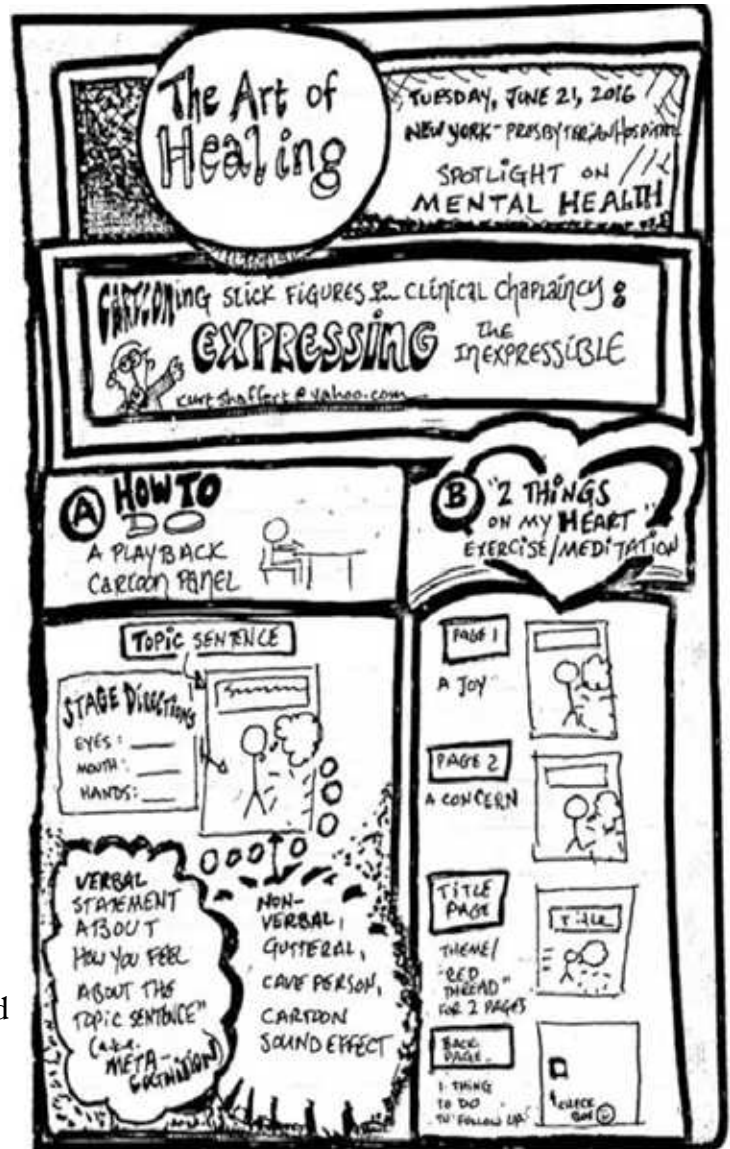 The Art of
Healing
TUESDAY, JUNE 21, 2016
NEW YORK-PRESBYTERIAN HOSPITAL
SPOTLIGHT ON
MENTAL HEALTH
CARTOONing STICK FIGURES in CLINICAL CHAPLAINCY:
EXPRESSING THE
INEXPRESSIBLE
kurtshaffert@yahoo.com
A HOW TO
DO
A PLAYBACK
CARTOON PANEL
TOPIC SENTENCE
STAGE DIRECTIONS
EYES:
MOUTH:
HANDS:
VERBAL
STATEMENT
ABOUT
HOW YOU FEEL
ABOUT THE
TOPIC SENTENCE"
(a.k.a.
META-
COGNITION)
NON-
VERBAL,
GUTTERAL,
CAVE PERSON,
CARTOON
SOUND EFFECT
B "2 THINGS
ON MY HEART"
EXERCISE/MEDITATION
PAGE 1
A JOY
PAGE 2
A CONCERN
TITLE
PAGE
Title
THEME/
"RED
THREAD"
FOR 2 PAGES
BACK
PAGE
1 THING
TO DO
TO "FOLLOW UP"
CHECK
BOX
d